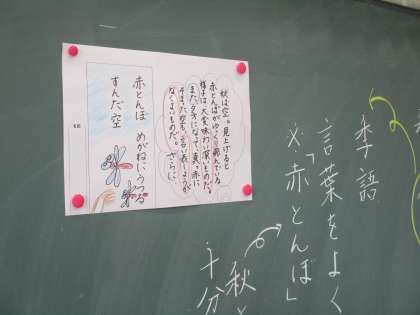 季語
言葉をよく
×「赤とんぼ」
秋と
十分
秋は空。見上げると
赤とんぼがゆっくり飛んでいる
様子は大変味わい深いものだ。
また、夕方になって、真っ赤に
そまった空も、言い表しようが
なくよいものだ。さらに、
赤とんぼ めがねにうつる
すんだ空